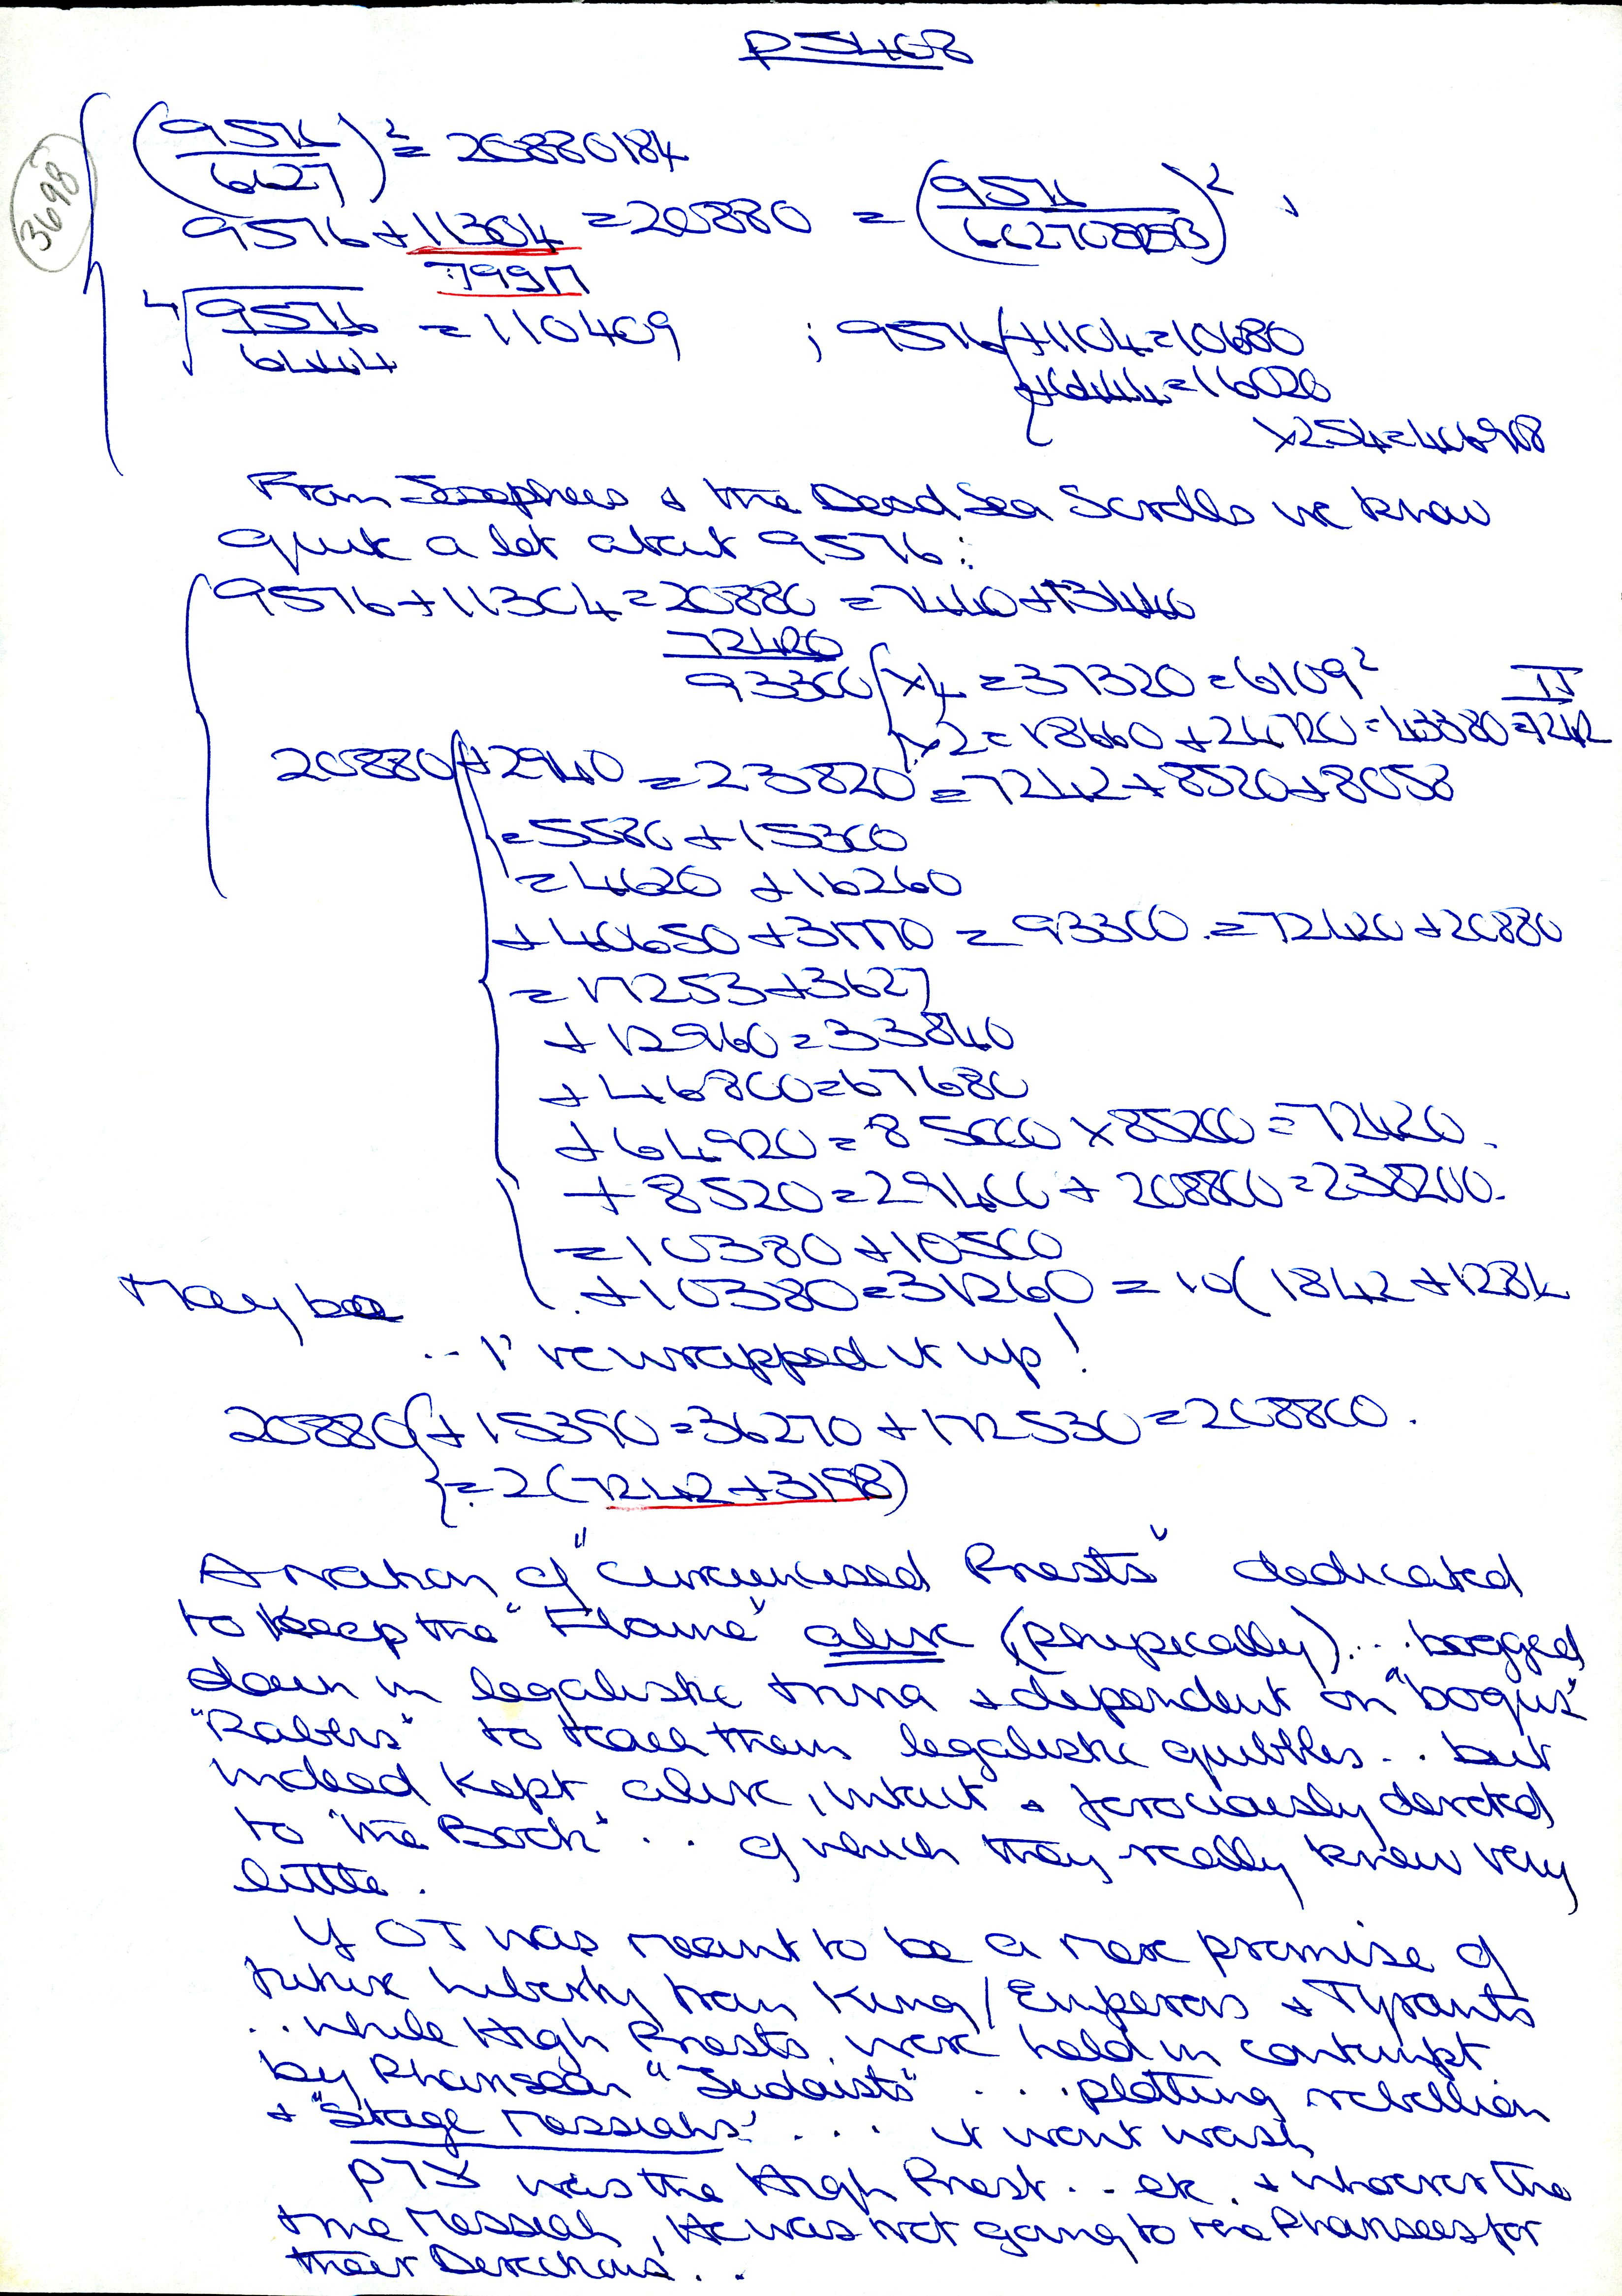 P5468
3698
(9576/6627)² = 20880184
9576 + 11304 = 20880 = (9576/)²
7997
⁴√(9576/6444) = 110409 ; 9576 + 1104 = 10680
+6444 = 16020
x254 = 406908
From Josephus & the Dead Sea Scrolls we know
quite a lot about 9576:
9576 + 11304 = 20880 = 7440 + 13440
72420
93300 x4 = 37320 = 6109² II
x2 = 18660 + 24720 = 43380 = 7242
20880 + 2940 = 23820 = 7242 + 8520 + 8058
= 5580 + 15300
= 4620 + 16260
+ 40650 + 31770 = 93300 = 72420 + 20880
= 17253 + 3627
+ 12960 = 33840
+ 46800 = 67680
+ 64920 = 85000 x 8520 = 72420.
+ 8520 = 29400 + 208800 = 238200.
= 10380 + 10500
+ 10380 = 31260 = 10(1842 + 1284
Maybe
.. I've wrapped it up!
20880 + 15390 = 36270 + 172530 = 208800.
= 2(7242 + 3198)
A nation of "circumcised Priests" dedicated
to keep the "Flame" alive (physically)... bogged
down in legalistic & dependent on "bogus"
"Rabbis" to their legalistic quibbles .. but
indeed kept alive, intact & ferociously devoted
to "the Book" .. of which they really knew very
little.
If OT was meant to be a mere promise of
future liberty from King/Emperors & Tyrants
.. while High Priests were held in contempt
by Pharisean "Judaists" ... plotting rebellion
& "Stage Messiahs" ... it wont wash
was the High Priest .. etc. & whoever the
true Messiah, He was not going to the Pharisees for
their